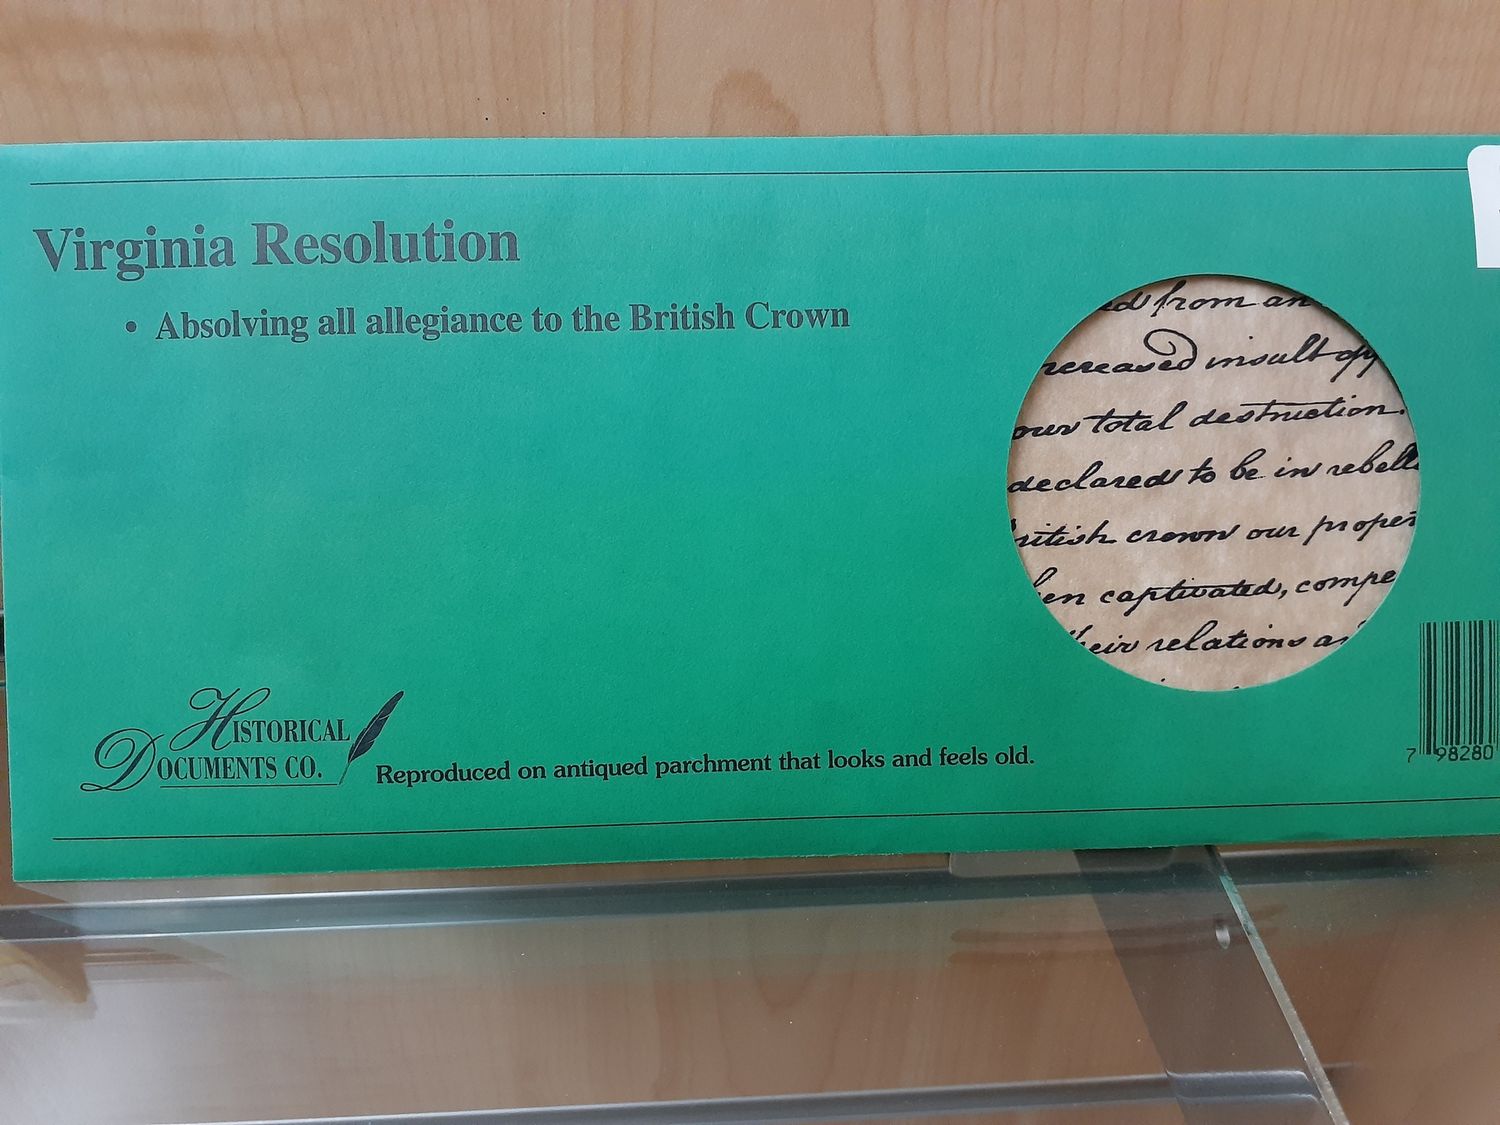 Virginia Resolution
• Absolving all allegiance to the British Crown
ed from an
ncreased insult opp
our total destruction.
declared to be in rebell
ritish crown our proper
hen captivated, compe
heir relations a
HISTORICAL
DOCUMENTS CO.
Reproduced on antiqued parchment that looks and feels old.
7 98280